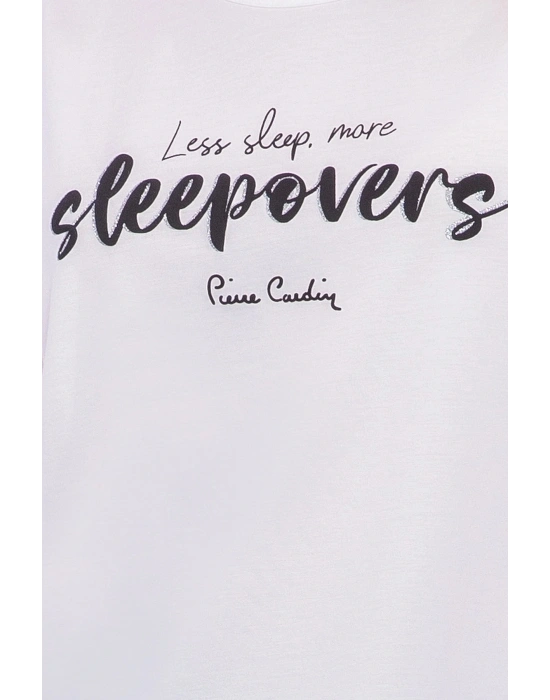 Less sleep, more
sleepovers
Pierre Cardin